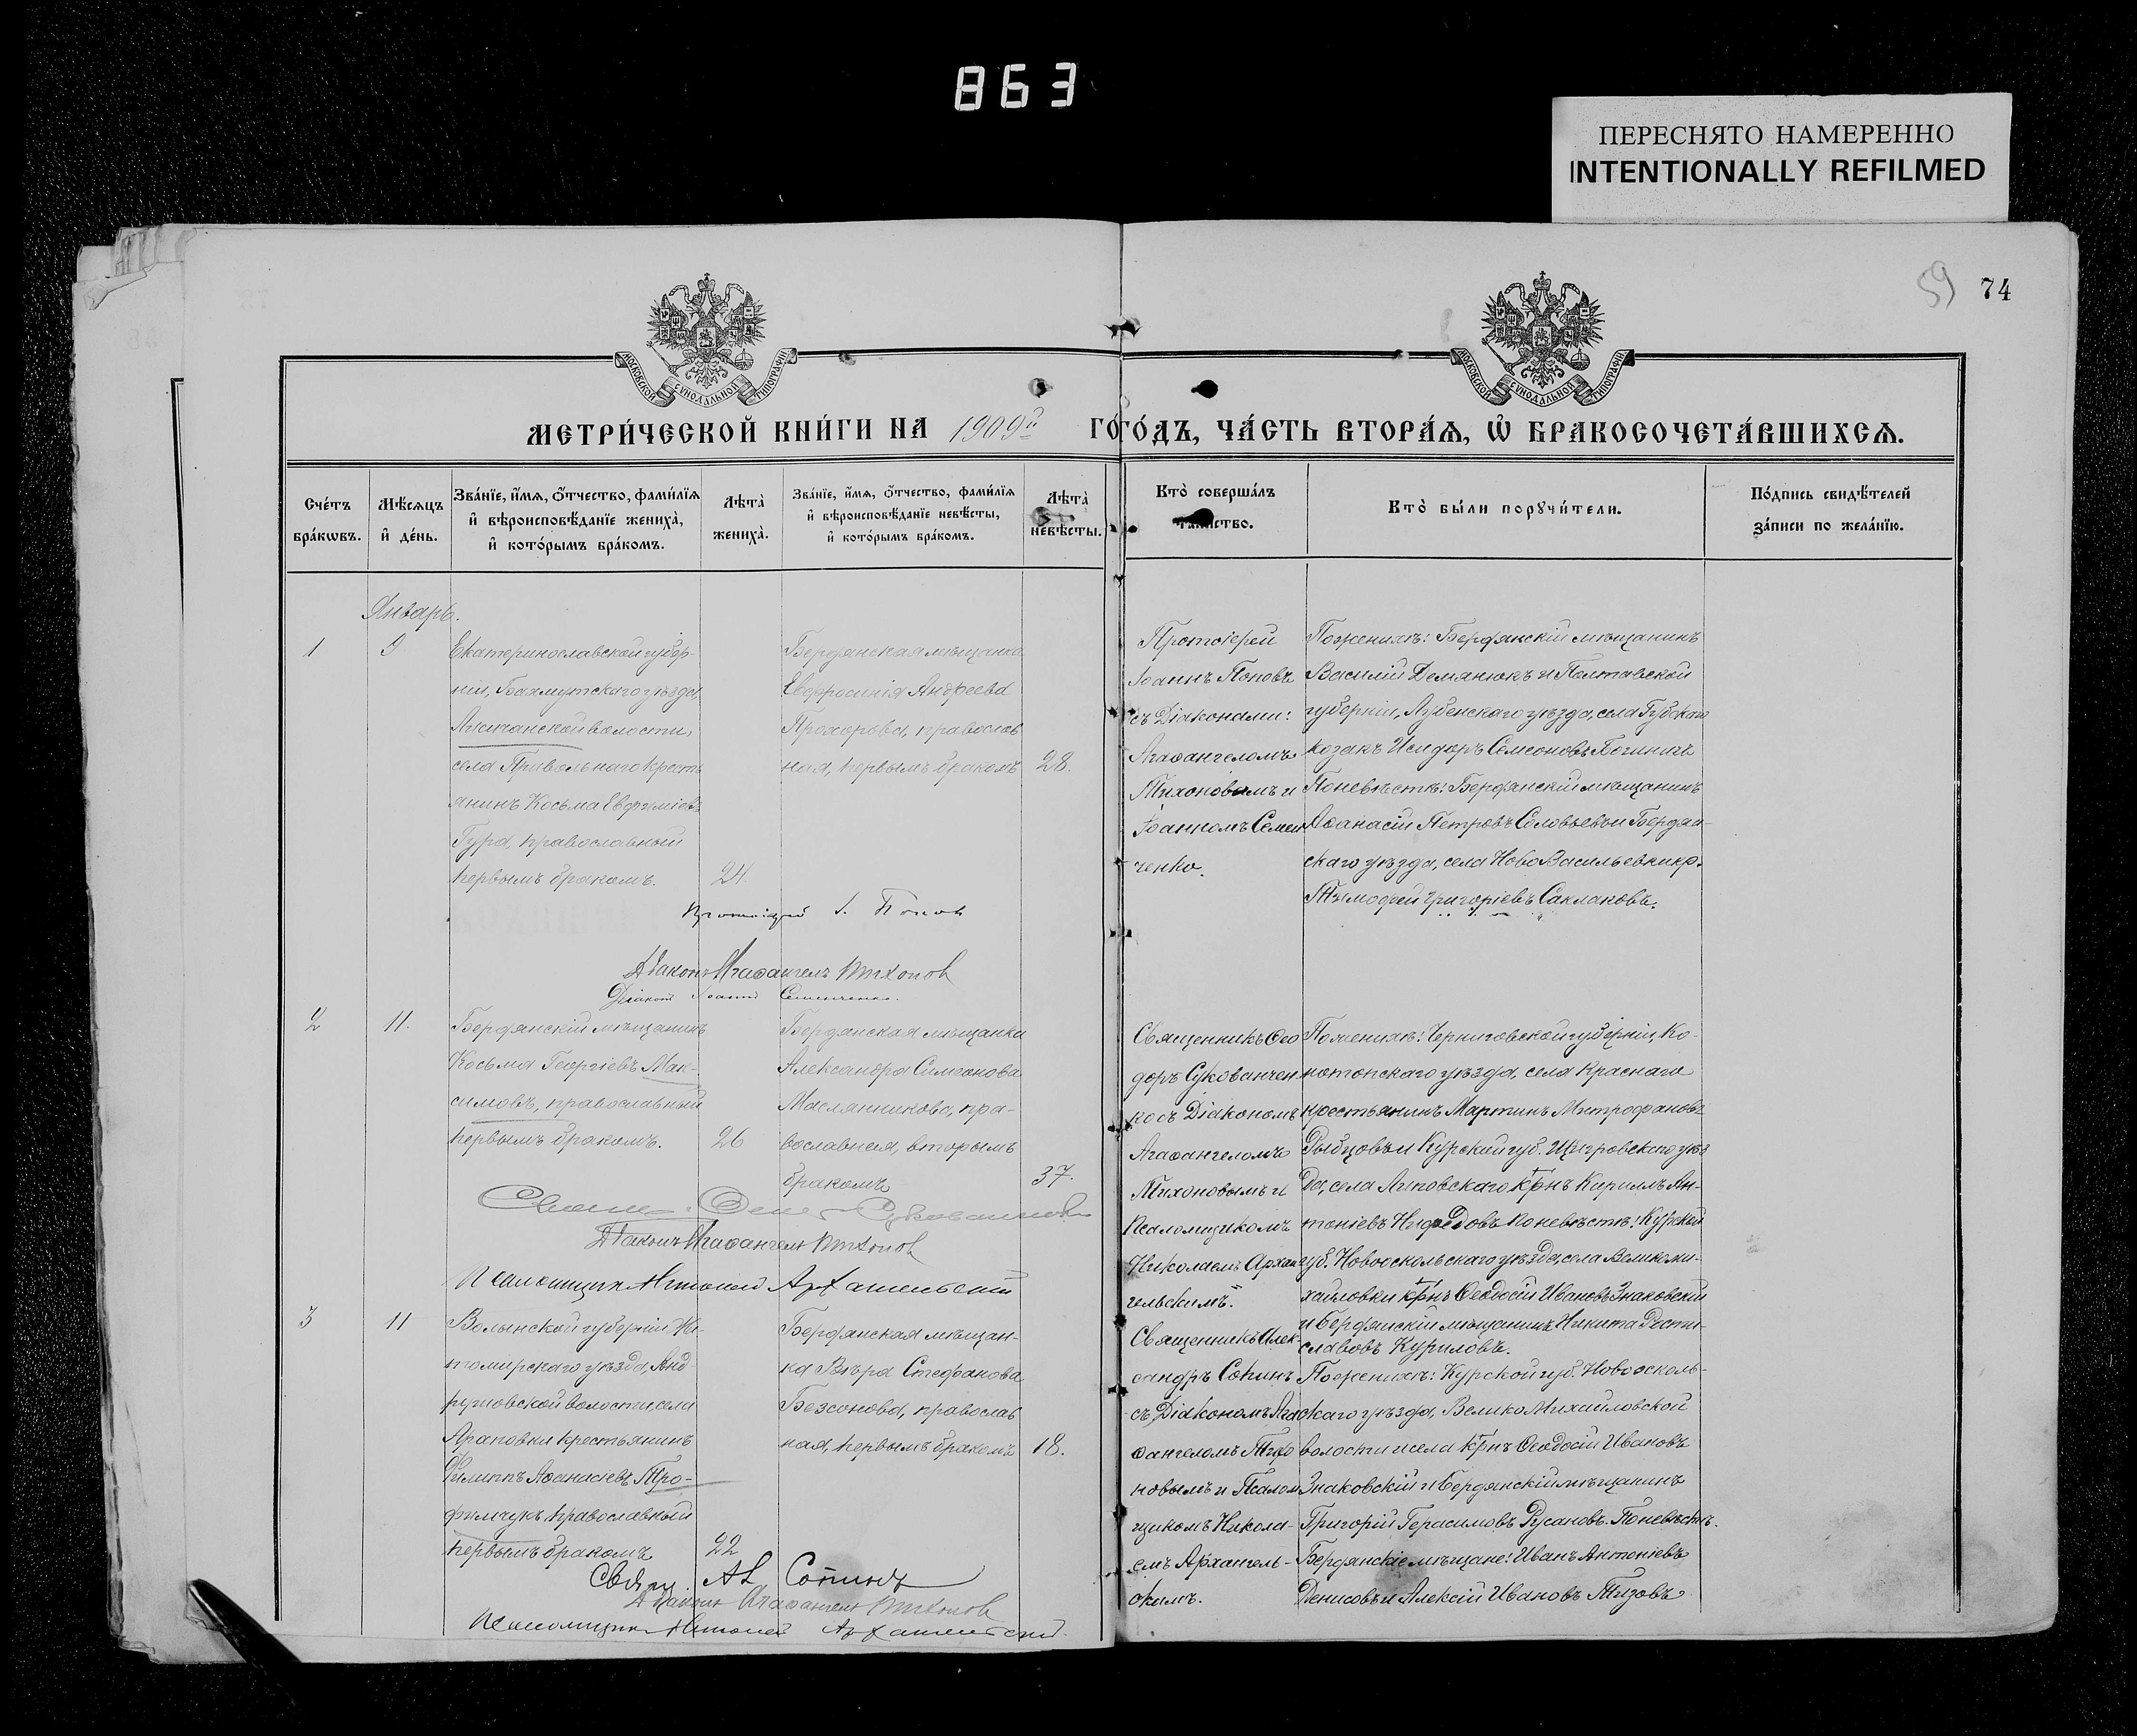 863
ПЕРЕСНЯТО НАМЕРЕННО
INTENTIONALLY REFILMED
59 74
МОСКОВСКОЙ СѴНОДАЛЬНОЙ ТИПОГРАФІИ
МОСКОВСКОЙ СѴНОДАЛЬНОЙ ТИПОГРАФІИ
МЕТРИ́ЧЕСКОЙ КНИ́ГИ НА 1909й ГО́ДЪ, ЧА́СТЬ ВТОРА́Я, Ѡ БРАКОСОЧЕТА́ВШИХСЯ.
Сче́тъ
бра́кѡвъ.
Мѣ́сяцъ
и҆ де́нь.
Зва́нїе, и҆́мя, ѻ҆́тчество, фами́лїя
и҆ вѣроисповѣ́данїе жениха̀,
и҆ кото́рымъ бра́комъ.
Лѣта̀
жениха̀.
Зва́нїе, и҆́мя, ѻ҆́тчество, фами́лїя
и҆ вѣроисповѣ́данїе невѣ́сты,
и҆ кото́рымъ бра́комъ.
Лѣта̀
невѣ́сты.
Кто̀ соверша́лъ
таинство.
Кто̀ бы́ли порꙋчи́тели.
По́дпись свидѣ́телей
за́писи по жела́нїю.
Январь.
1
9
Екатеринославской губер-
ніи, Бахмутскаго уѣзда,
волости,
села Привольнаго кресть
янинъ Косьма Евфиміевъ
Гура, православный
первымъ бракомъ.
24
Бердянская мѣщанка
Евфросинія Андреева
Прохорова, православ
ная, первымъ бракомъ
28.
Протоіерей
Іоаннъ Поповъ
съ Діаконами:
Агаѳангеломъ
Тихоновымъ и
Іоанномъ Семен
ченко.
По женихѣ: Бердянскій мѣщанинъ
Василій Демянюкъ и Полтавской
губерніи, Лубенскаго уѣзда, села Губскаго
козакъ Исидоръ Симеоновъ
По невѣстѣ: Бердянскій мѣщанинъ
Аѳанасій Петровъ Соловьевъ и Бердян-
скаго уѣзда, села НовоВасильевки кр.
Тимофей Григоріевъ Саклаковъ.
Протоіерей І. Попов
Діаконъ Агаѳангелъ Тихонов
Діаконъ Іоаннъ Семенченко.
2
11.
Бердянскій мѣщанинъ
Косьма Георгіевъ Мак-
симовъ, православный
первымъ бракомъ.
26
Бердянская мѣщанка
Александра Симеонова
Маслянникова, пра-
вославная, вторымъ
бракомъ
37.
Священникъ Ѳео
доръ Сукованчен
ко съ Діакономъ
Агаѳангеломъ
Тихоновымъ и
Псаломщикомъ
Николаемъ Архан
гельскимъ.
По женихѣ: Черниговской губерніи, Ко-
нотопскаго уѣзда, села Краснаго
крестьянинъ Мартинъ Митрофановъ
Рыбцовъ и Курской губ. Щигровскаго уѣз
да, села Липовскаго крнъ Кириллъ Ан-
тоніевъ По невѣстѣ: Курской
губ. Новооскольскаго уѣзда, села Великоми-
хайловки крнъ Ѳеодосій Ивановъ Знаковскій
и Бердянскій мѣщанинъ Никита Рости-
славовъ Куриловъ.
Діаконъ Агаѳангелъ Тихонов
Псаломщик Николай Архангельский
3
11
Волынской губерніи Жи-
томирскаго уѣзда, Анд-
рушовской волости, села
Яроповки крестьянинъ
Филиппъ Аѳанасіевъ Тро-
фимчукъ, православный
первымъ бракомъ
22
Бердянская мѣщан-
ка Вѣра Стефанова
Безсонова, православ
ная, первымъ бракомъ
18.
Священникъ Алек-
сандръ Сопинъ
съ Діакономъ Ага
ѳангеломъ Тихо
новымъ и Псалом
щикомъ Никола-
емъ Архангель-
скимъ.
По женихѣ: Курской губ. Новоосколь-
скаго уѣзда, ВеликоМихайловской
волости и села крнъ Ѳеодосій Ивановъ
Знаковскій и Бердянскій мѣщанинъ
Григорій Герасимовъ Русановъ. По невѣстѣ.
Бердянскіе мѣщане: Иванъ Антоніевъ
Денисовъ и Алексій Ивановъ Тизовъ
Свящ. Ал Сопинъ
Діаконъ Агаѳангелъ Тихонов
Псаломщик Николай Архангельский.